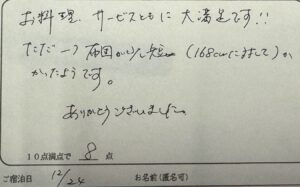 お料理、サービスともに大満足です!!
ただ一つ布団が少し短 (168cmに対して)か
かったようです。
ありがとうございました。
10点満点で 8 点
ご宿泊日 12/24 お名前(匿名可)